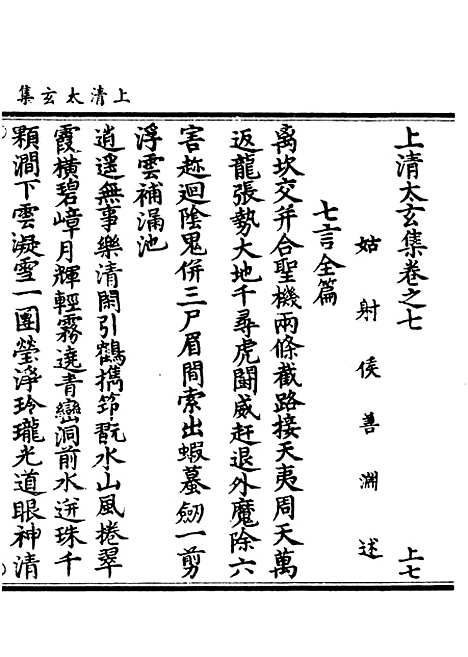 上清太玄集
上清太玄集卷之七
上七
姑射侯善淵述
七言全篇
离坎交并合聖機兩條截路接天夷周天萬
返龍張勢大地千尋虎鬭威赶退外魔除六
害趂迴陰鬼併三尸眉間索出蝦蟇劒一剪
浮雲補漏池
逍遥無事樂清閑引鶴擕笻翫水山風捲翠
霞橫碧嶂月輝輕霧遶青巒洞前水迸珠千
顆澗下雲凝雪一團瑩淨玲瓏光道眼神清